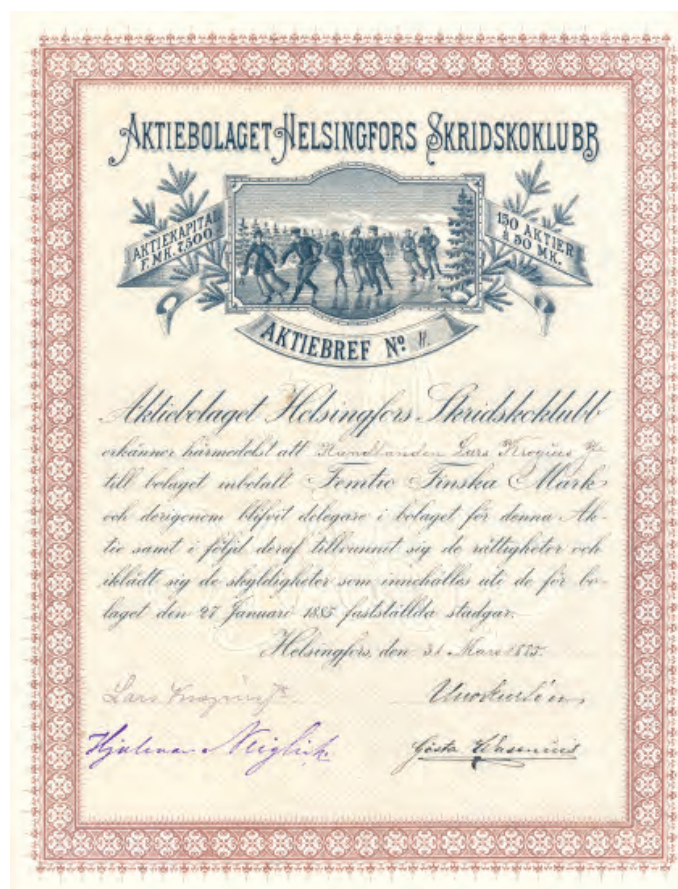 AKTIEBOLAGET HELSINGFORS SKRIDSKOKLUBB
AKTIEKAPITAL
F. MK. 7,500
150 AKTIER
à 50 MK.
AKTIEBREF Nº 11.
Aktiebolaget Helsingfors Skridskoklubb
erkänner härmedelst att Handlanden Lars Krogius Jr
till bolaget inbetalt Femtio Finska Mark
och derigenom blifvit delegare i bolaget för denna Ak-
tie samt i följd deraf tillvunnit sig de rättigheter och
iklädt sig de skyldigheter som innehålles uti de för bo-
laget den 27 Januari 1885 fastställda stadgar.
Helsingfors, den 31 Mars 1885.
Lars Krogius Jr
Hjalmar Neiglick
Gösta Wasenius